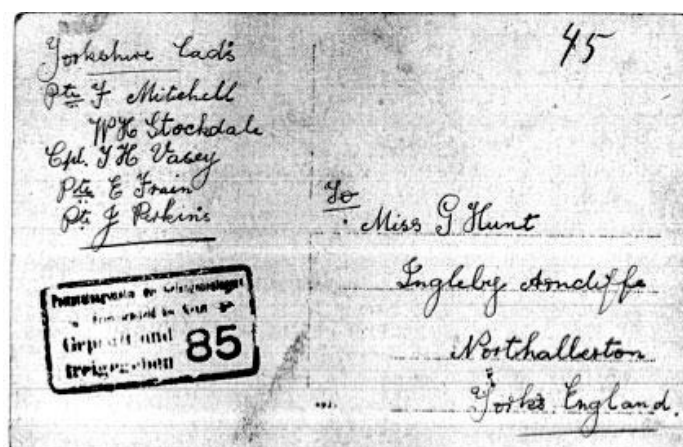 Yorkshire Lads
Pte F Mitchell
W H Stockdale
Cpl. T H Vasey
Pte E Frain
Pte J Perkins
45
To
Miss G Hunt
Ingleby Arncliffe
Northallerton
Yorks England.
Geprüft und
freigegeben
85